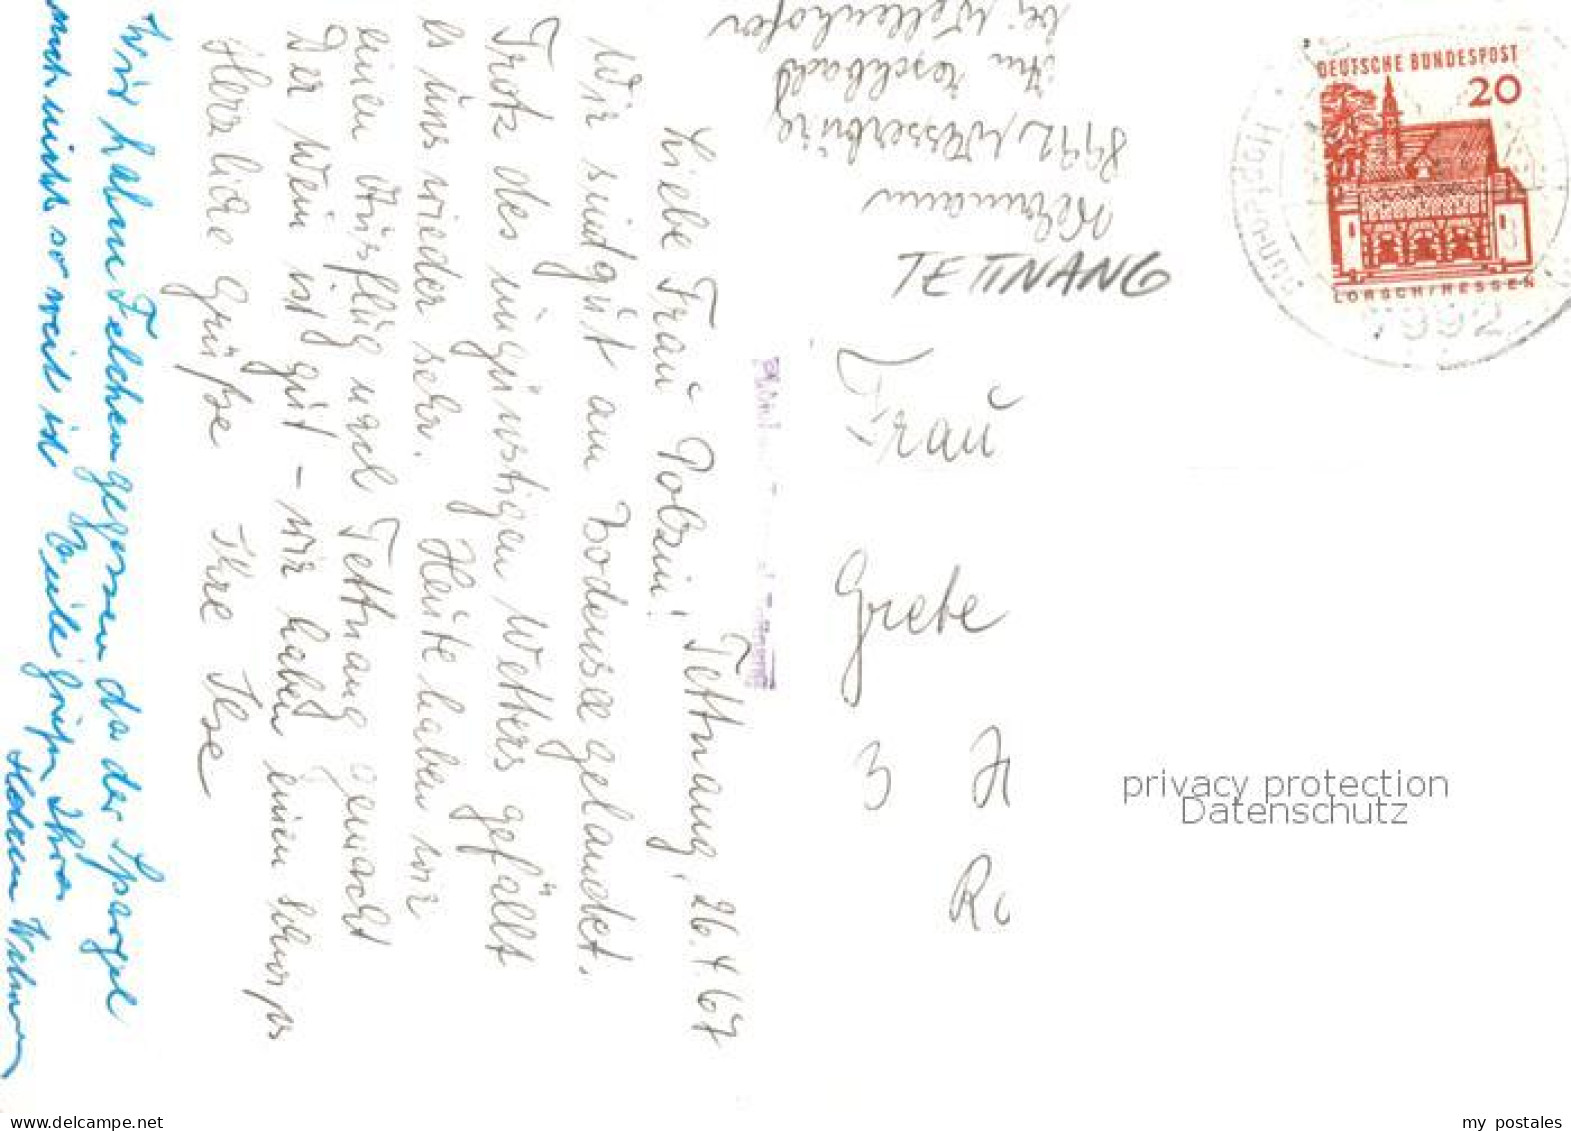 Tettnang, 26.4.67
Liebe Frau Polzin!
Wir sind gut am Bodensee gelandet.
Trotz des ungünstigen Wetters gefällt
es uns wieder sehr. Heute haben wir
einen Ausflug nach Tettnang gemacht
Der Wein ist gut – wir haben einen Schwips
Herzliche Grüße Ihre Ilse
Wir haben Felchen gegessen da der Spargel
noch nicht so weit ist
Grüße Ihre
8992 Wasserburg
bei Wellenhofer
TETTNANG
Frau
Grete
3 H
R
DEUTSCHE BUNDESPOST
20
LORSCH/HESSEN
7992
privacy protection
Datenschutz
www.delcampe.net
my_postales